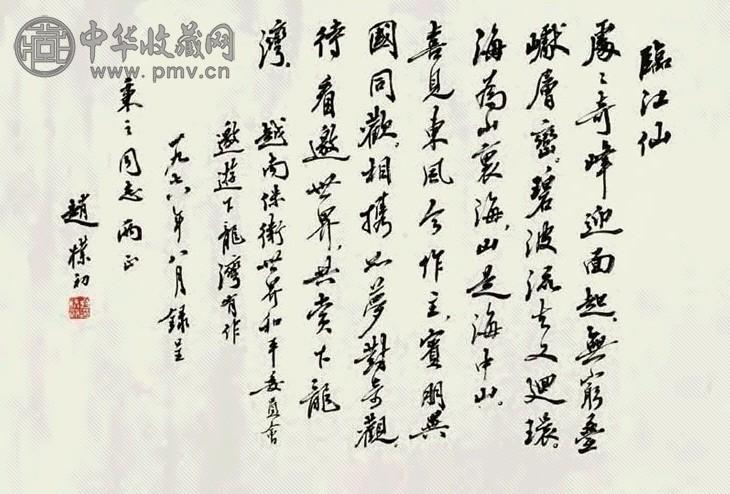 臨江仙
處々奇峰迎面起，無窮疊
巘層巒。碧波流去又迴環。
海為山裏海，山是海中山。
喜見東風今作主，賓朋異
國同歡。相攜如夢對奇觀。
待看邀世界，共賞下龍
灣。
越南保衛世界和平委員會
邀遊下龍灣有作
一九六六年八月錄呈
秉之同志兩正
趙樸初
中华收藏网
www.pmv.cn